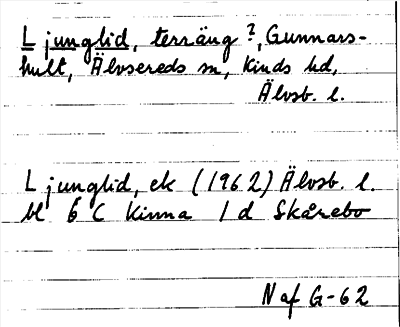 Ljunglid, terräng?, Gunnars-
hult, Älvsereds sn, Kinds hd,
Älvsb. l.
Ljunglid, ek (1962) Älvsb. l.
bl 6 C Kinna 1 d Skårebo
Naf G-62